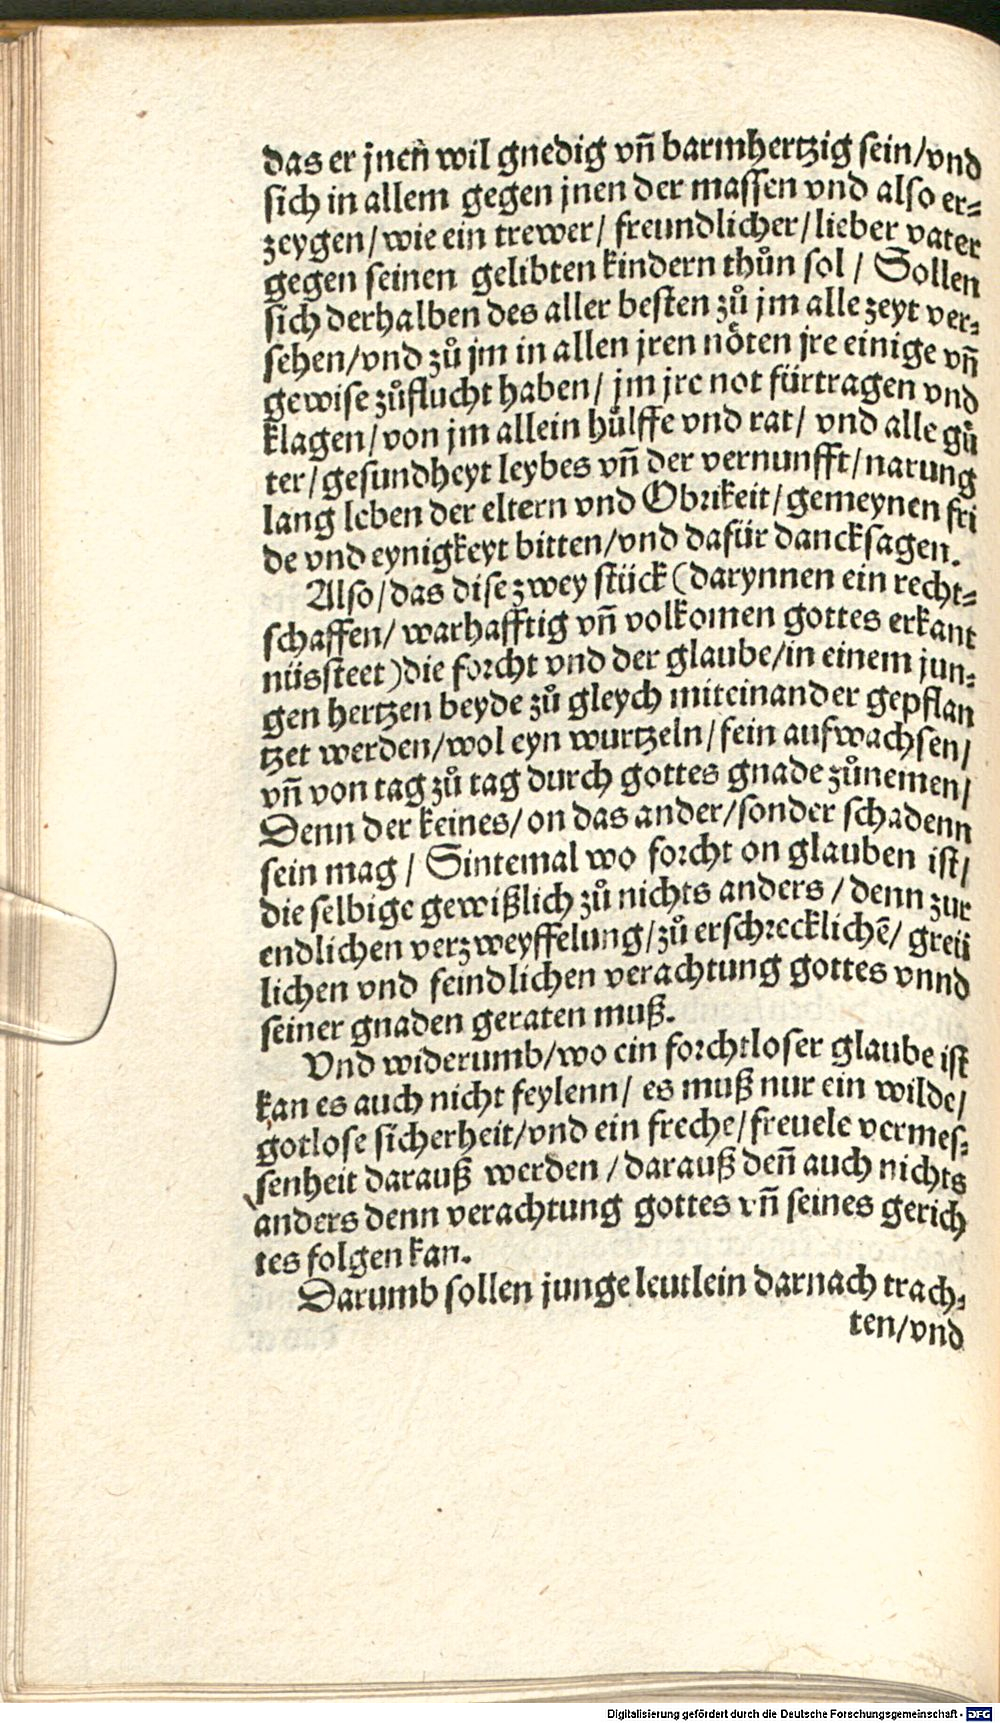 das er jnen wil gnedig vñ barmhertzig sein/vnd
sich in allem gegen jnen der massen vnd also er⸗
zeygen/wie ein trewer/ freundlicher/lieber vater
gegen seinen gelibten kindern thůn sol / Sollen
sich derhalben des aller besten zů jm alle zeyt ver⸗
sehen/vnd zů jm in allen jren nöten jre einige vñ
gewise zůflucht haben/ jm jre not fürtragen vnd
klagen/von jm allein hülffe vnd rat/ vnd alle gü
ter/gesundheyt leybes vñ der vernunfft/narung
lang leben der eltern vnd Obrikeit/gemeynen fri
de vnd eynigkeyt bitten/vnd dafür dancksagen.
Also/das dise zwey stück (darynnen ein recht⸗
schaffen/ warhafftig vñ volkomen gottes erkant
nüssteet)die forcht vnd der glaube/in einem jun⸗
gen hertzen beyde zů gleych miteinander gepflan
tzet werden/wol eyn wurtzeln/fein aufwachsen/
vñ von tag zů tag durch gottes gnade zůnemen/
Denn der keines/on das ander/sonder schadenn
sein mag / Sintemal wo forcht on glauben ist/
die selbige gewißlich zů nichts anders / denn zur
endlichen verzweyffelung/zů erschrecklichē/ greü
lichen vnd feindlichen verachtung gottes vnnd
seiner gnaden geraten muß.
Vnd widerumb/wo ein forchtloser glaube ist
kan es auch nicht feylenn/ es muß nur ein wilde/
gotlose sicherheit/vnd ein freche/freuele vermes⸗
senheit darauß werden /darauß deñ auch nichts
anders denn verachtung gottes vñ seines gerich
tes folgen kan.
Darumb sollen junge leutlein darnach trach⸗
ten/vnd
Digitalisierung gefördert durch die Deutsche Forschungsgemeinschaft - DFG